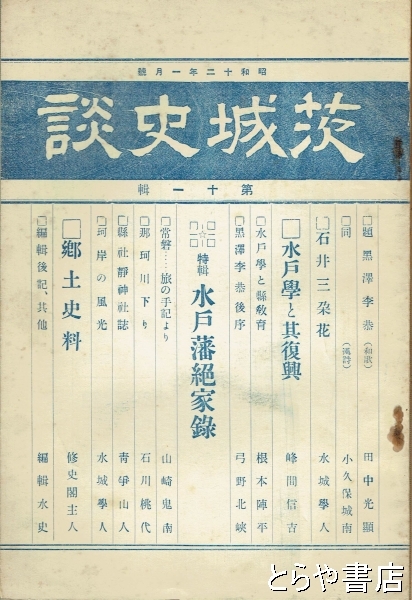 昭和十二年一月號
茨城史談
第十一輯
□題黒澤李恭(和歌) 田中光顯
□同(漢詩) 小久保城南
□石井三朶花 水城學人
□水戸學と其復興 峰間信吉
□水戸學と縣敎育 根本陣平
□黒澤李恭後序 弓野北峽
特輯 水戸藩絕家錄
□常磐……旅の手記より 山崎鬼南
□那珂川下り 石川桃代
□縣社靜神社誌 靑爭山人
□珂岸の風光 水城學人
□鄕土史料 修史閣主人
□編輯後記、其他 編輯水史
とらや書店